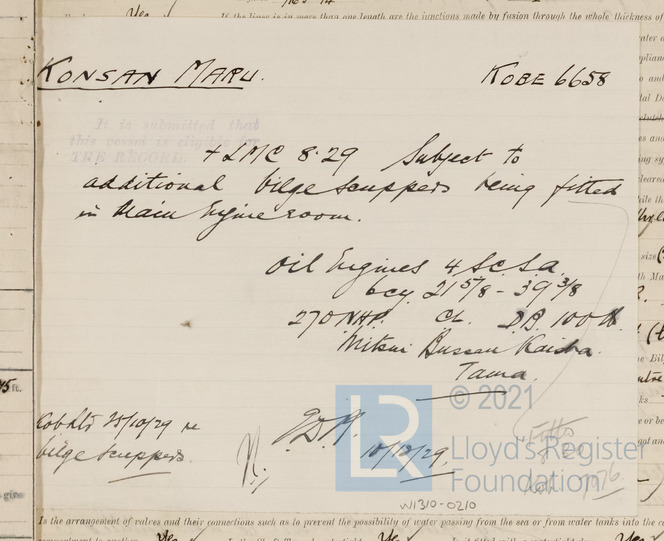 If the liner is in more than one length are the junctions made by fusion through the whole thickness of
KONSAN MARU. KOBE 6658
It is submitted that
this vessel is eligible for
THE RECORD
+ LMC 8.29 Subject to
additional bilge scuppers being fitted
in Main Engine room.
Oil Engines 4 SCSA
6cy. 21 5/8 - 39 3/8
270 NHP. DB 100 lb.
Mitsui Bussan Kaisha.
Tama.
© 2021
LR
Lloyd's Register
Foundation
25/10/29 re
bilge scuppers.
10/12/29.
W1310-0210
Is the arrangement of valves and their connections such as to prevent the possibility of water passing from the sea or from water tanks into the